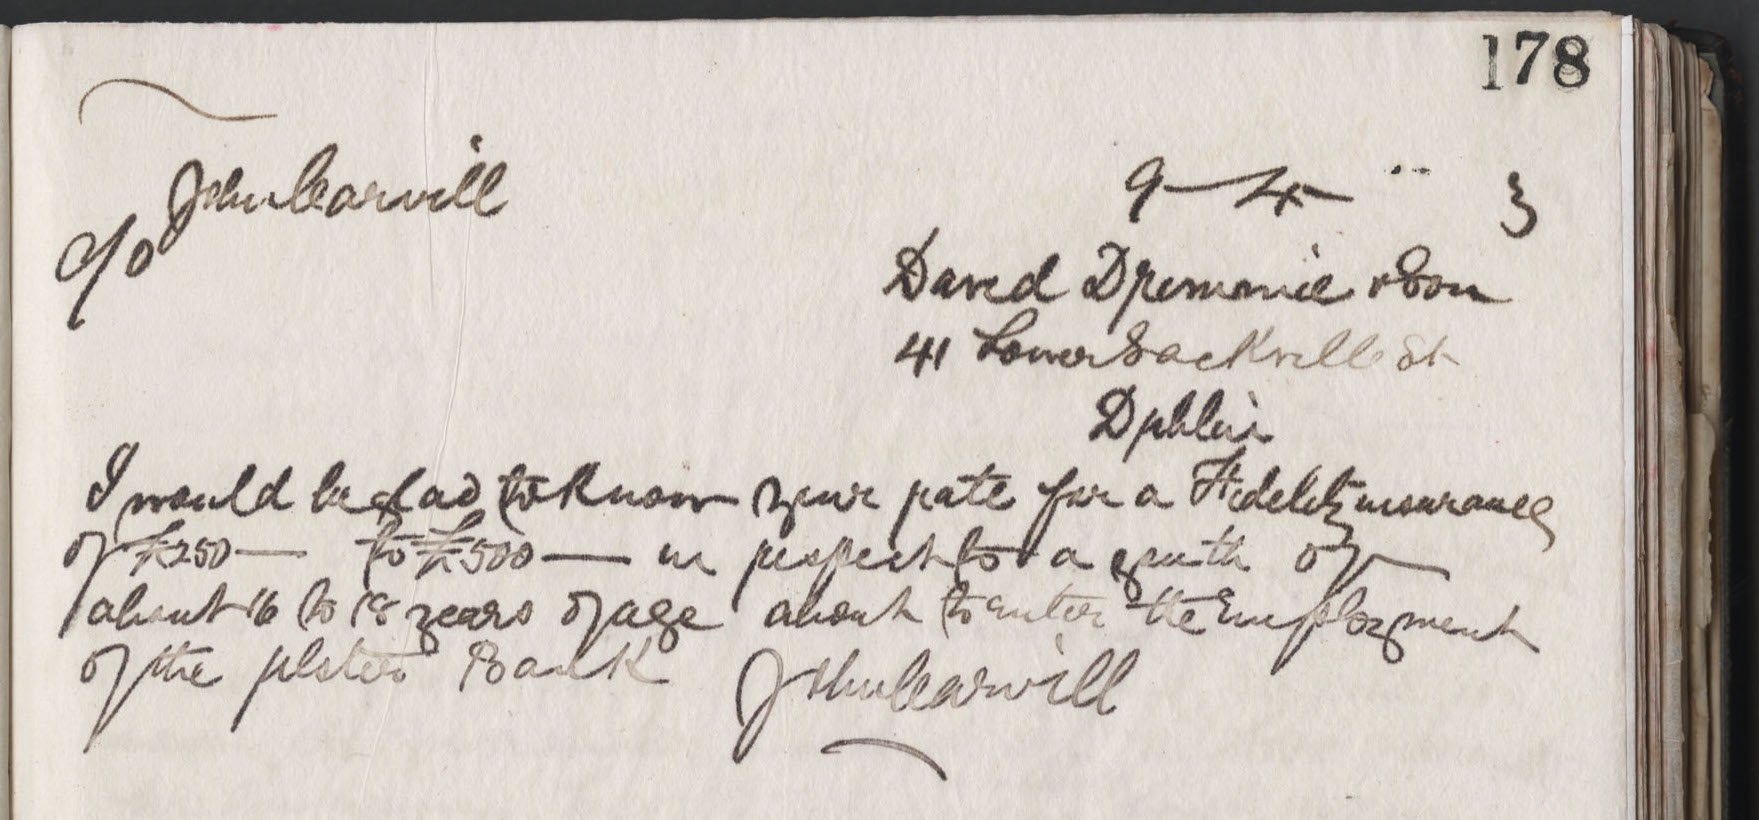 178
John Carvill
9-4-" 3
c/o
David Drimmie & Son
41 Lower Sackville St
Dublin
I would be glad to know your rate for a Fidelity insurance
of £250— to £500— in respect to a youth of
about 16 to 18 years of age about to enter the Employment
of the Ulster Bank John Carvill